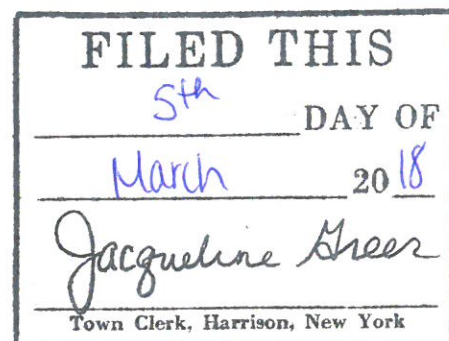 FILED THIS
5th DAY OF
March 2018
Jacqueline Greer
Town Clerk, Harrison, New York